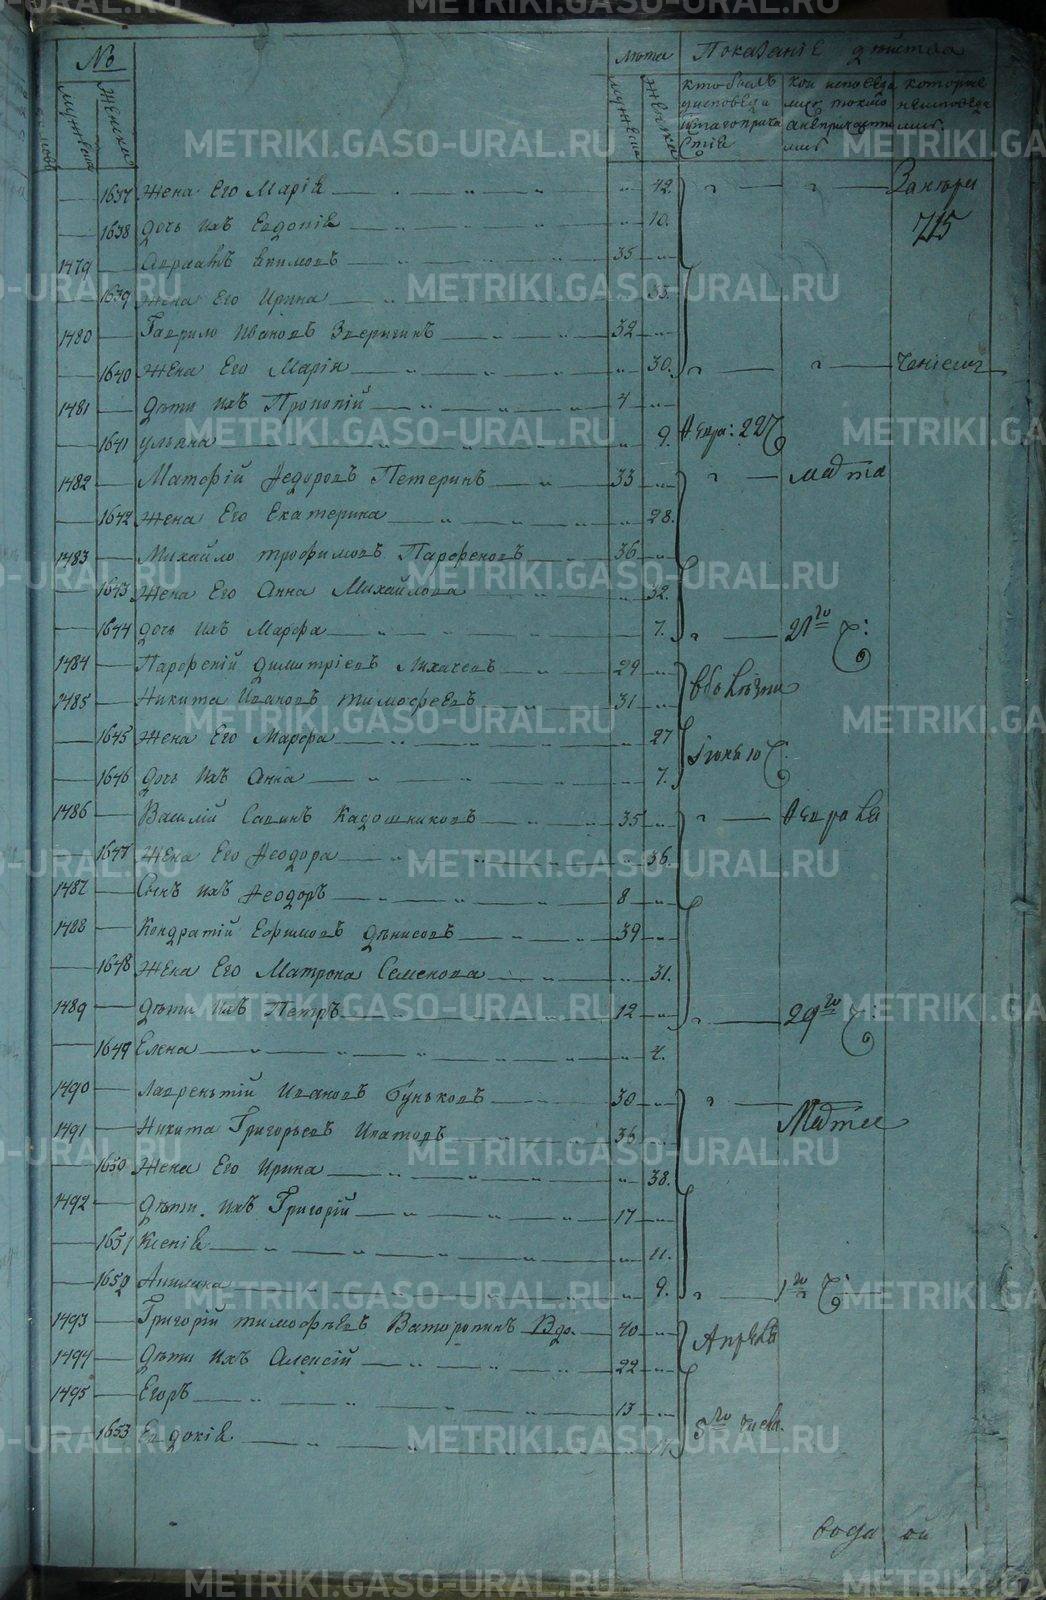 № Лѣта Показанїе дѣйства
мужеска женска мужеска женска
кто былъ у исповеди и стаго причастїя
кои исповедались токмо а не причастились
которые не исповедались
1637 Жена Его Марїя 42
1638 дочь ихъ Евдокїя 10 715
1479 35
1639 Жена Его Ирина 33
1480 Гаврило Ивановъ Зверигинъ 32
1640 Жена Его Марїя 30
1481 Дѣти ихъ Прокопїй 4
1641 ульяна 9 Февра: 22 Ч
1482 Матѳей Ѳедоровъ Петеринъ 33 Марта
1642 Жена Его Екатерина 28
1483 Михайло трофимовъ Парфеновъ 36
1643 Жена Его Анна Михайлова 32
1644 дочь ихъ Марфа 7 21го Ч:
1484 Парфенїй димитрїевъ Лихачевъ 29
1485 Никита Ивановъ тимофеевъ 31
1645 Жена Его Марфа 27
1646 дочь ихъ Анна 7 Їюня 10 Ч:
1486 Василїй Савинъ Кадошниковъ 35 Февраля
1647 Жена Его Ѳеодора 36
1487 Сынъ ихъ Ѳеодоръ 8
1488 Кондратїй Ефимовъ Денисовъ 39
1648 Жена Его Матрона Семенова 31
1489 Дѣти ихъ Петръ 12 29го Ч:
1649 Елена 4
1490 Лаврентїй Ивановъ Буньковъ 30
1491 Никита Григорьевъ 36 Марта
1650 Жена Его Ирина 38
1492 Дѣти ихъ Григорїй 17
1651 Ксенїя 11
1652 Акилина 9 1го Ч:
1493 Григорїй тимофѣевъ Ваторопинъ Вдо. 40 Апреля
1494 Дѣти ихъ Алексїй 22
1495 Егоръ 13
1653 Евдокїя 17 5го числа.
METRIKI.GASO-URAL.RU